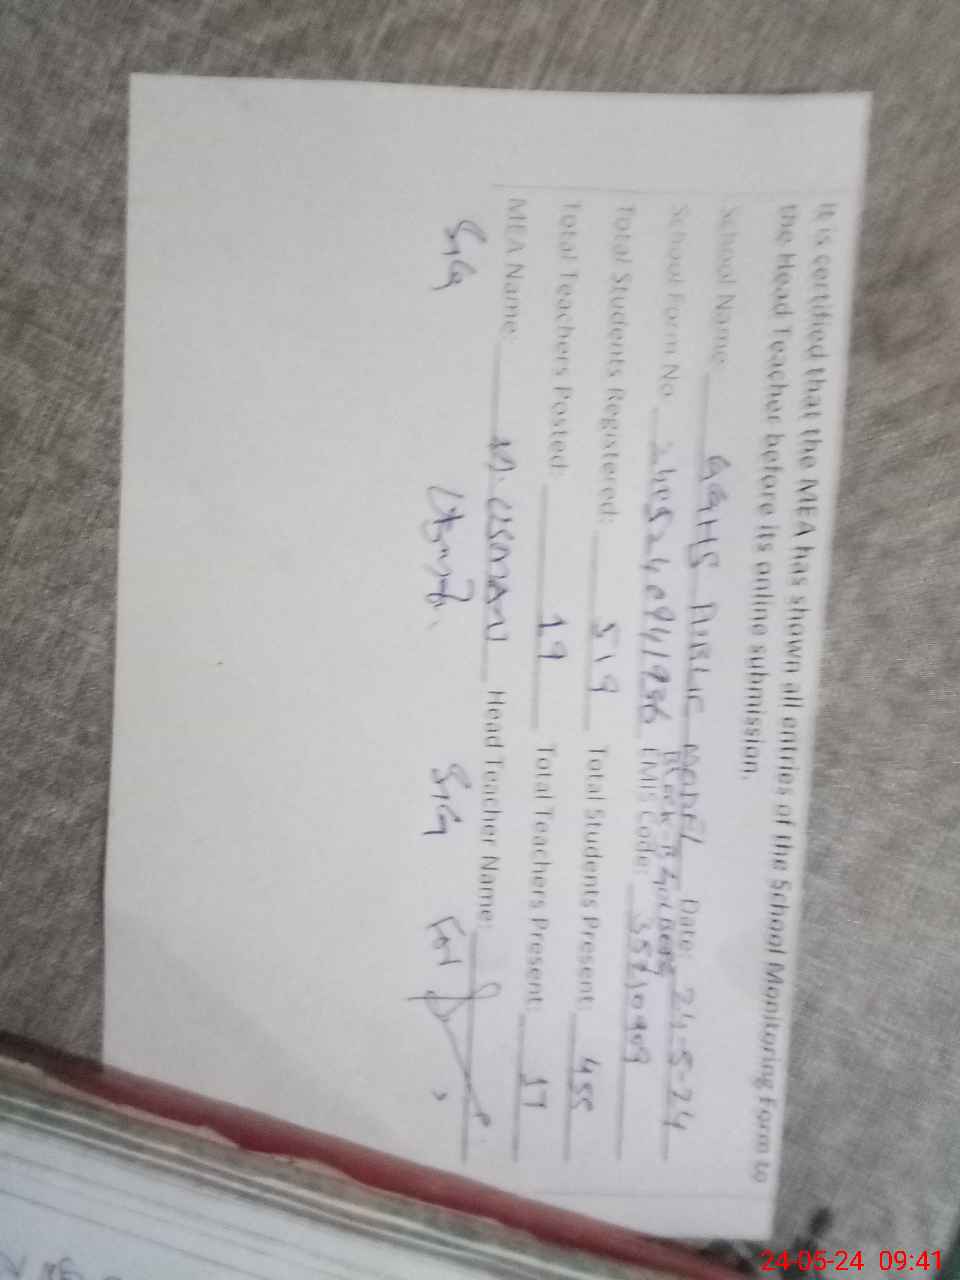 It is certified that the MEA has shown all entries of the School Monitoring Form to
the Head Teacher before its online submission.
School Name: GGHS PUBLIC MODEL Date: 24-5-24
Block-B
School Form No. EMIS Code:
Total Students Registered: 519 Total Students Present: 455
Total Teachers Posted: 19 Total Teachers Present: 17
MEA Name: M. USMAN Head Teacher Name:
SIG SIG For
24-05-24 09:41